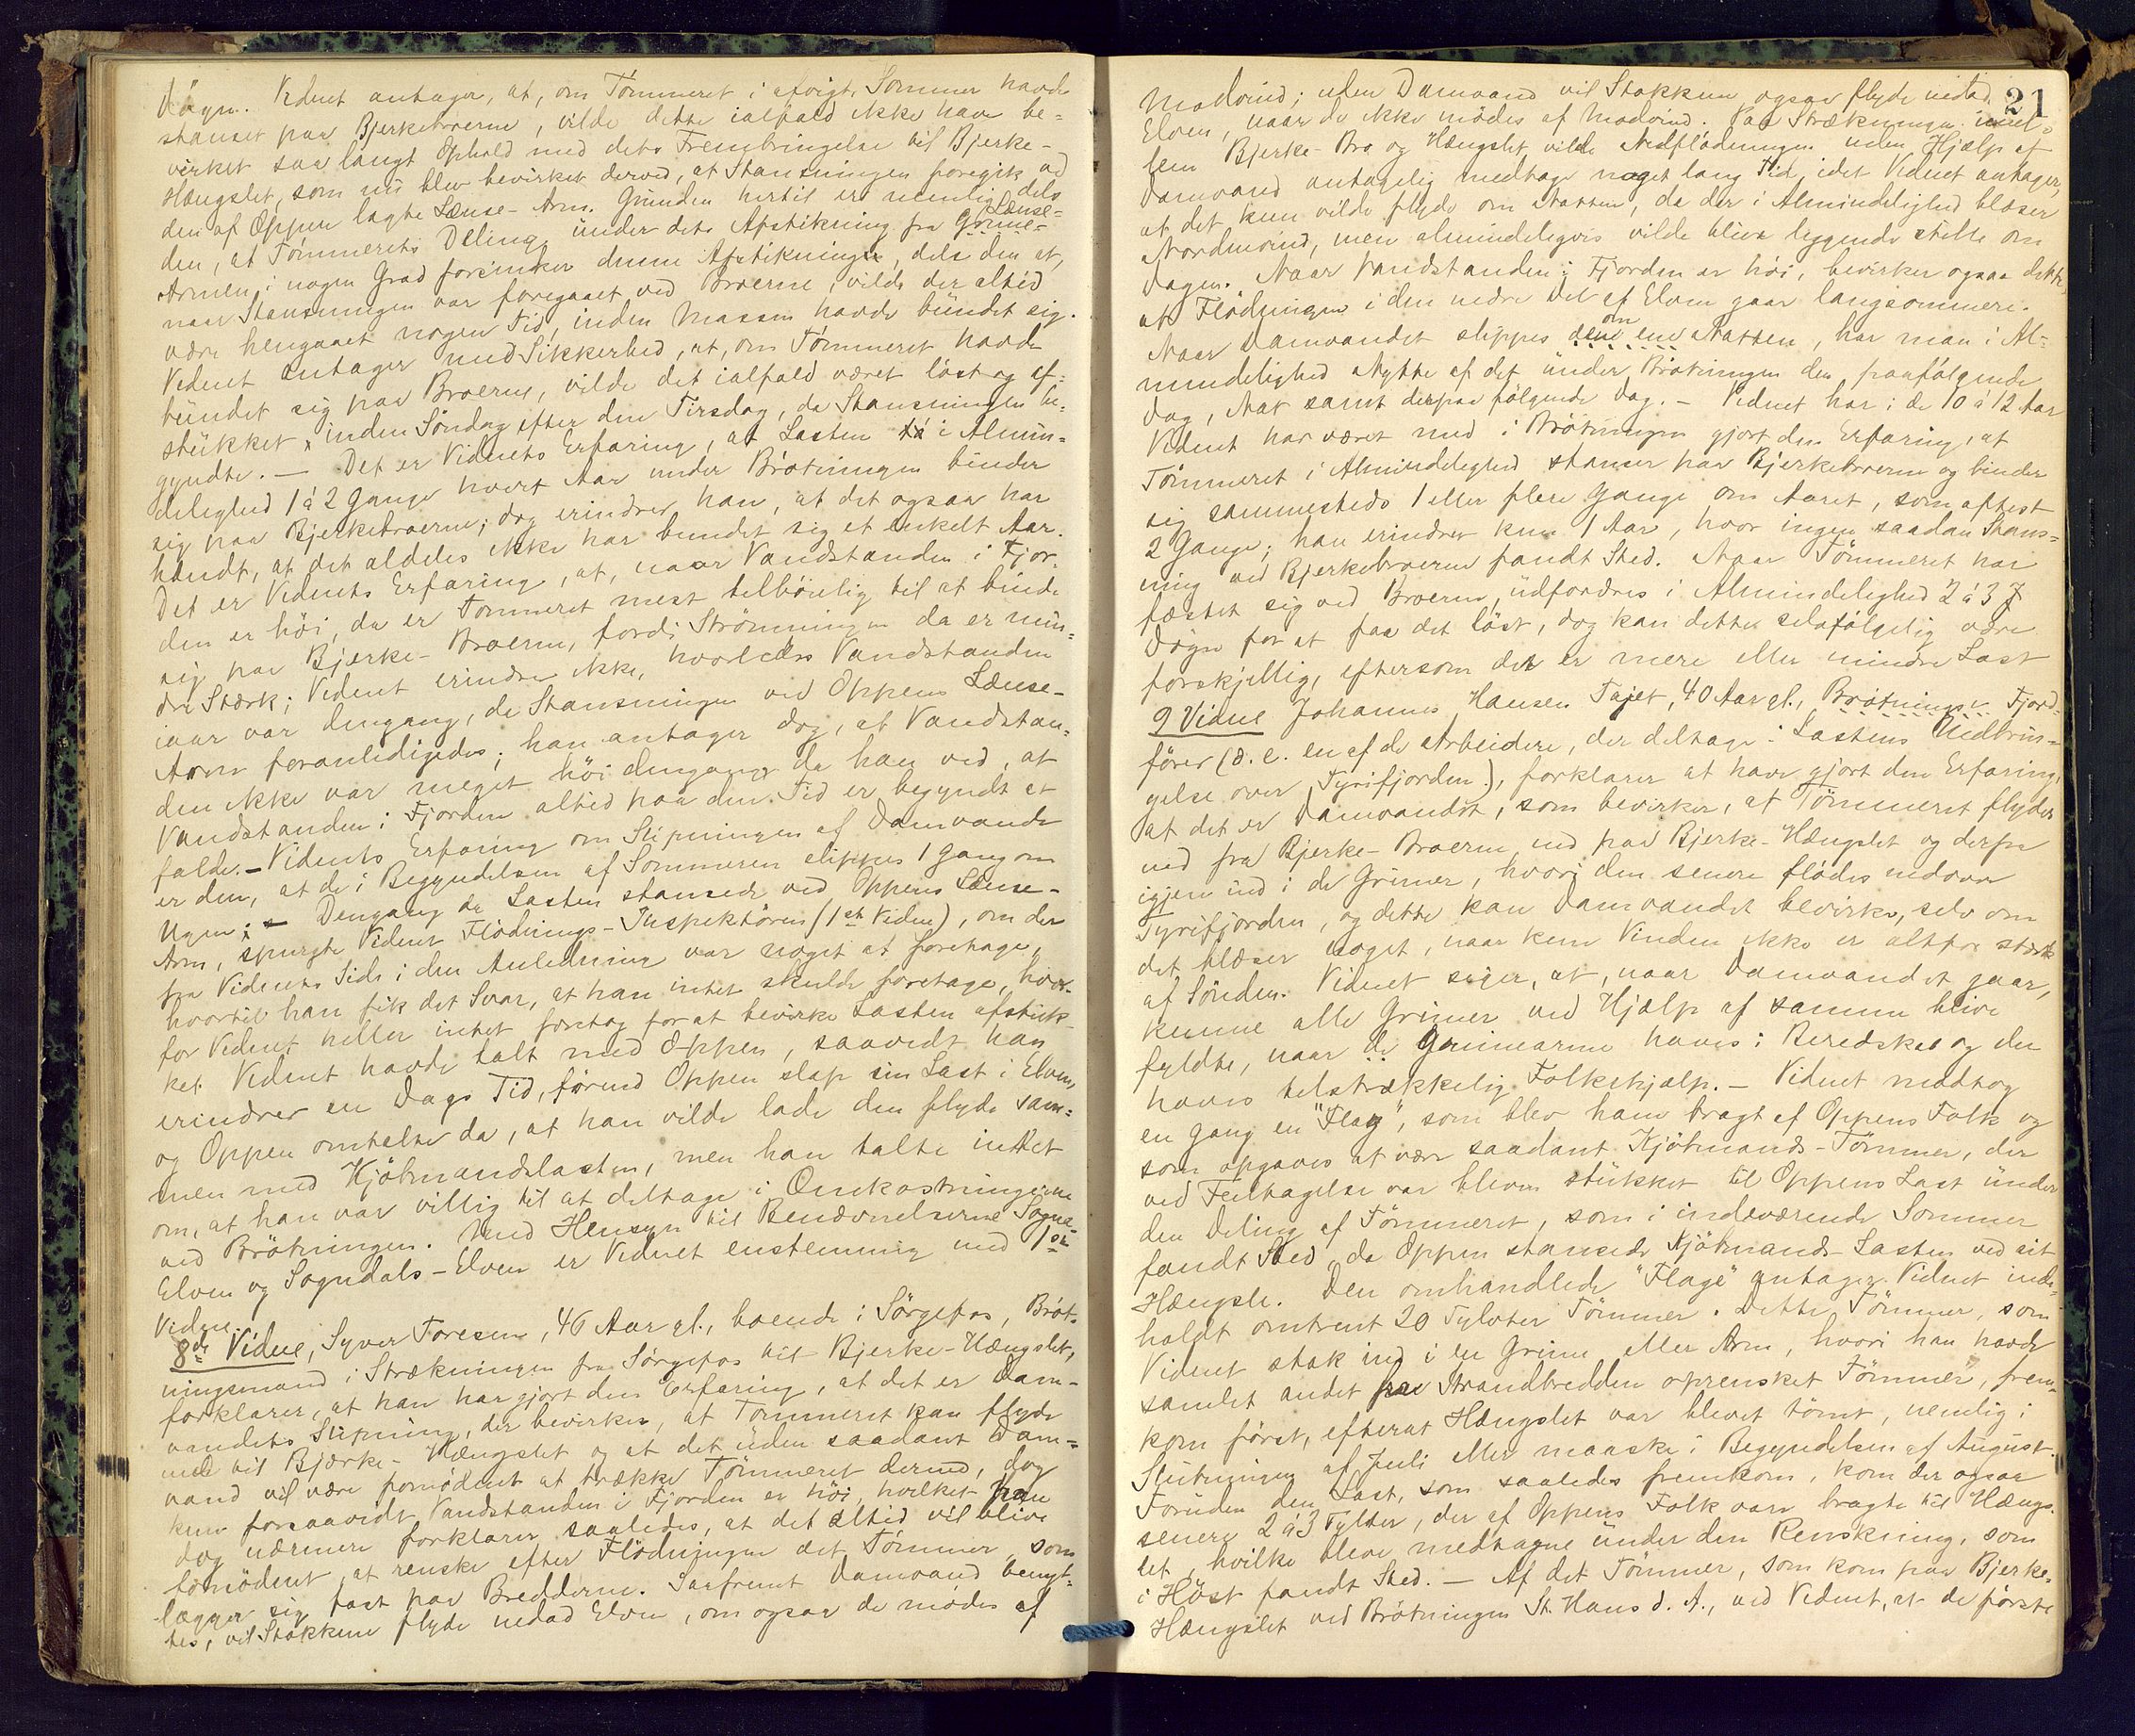 Døgn. Vidnet antager, at, om Tømmeret i afvigt. Sommer havde
stanset paa Bjerkebroerne, vilde dette ialfald ikke have be=
virket saa langt Ophold med dets Frembringelse til Bjerke-
Hængslet, som nu blev bevirket derved, at Stansningen foregik ved
den af Oppen lagte Lænse-Arm. Grunden hertil er nemlig dels
den, at Tømmerets Deling under dets Afstikning fra Grime= Lænse=
Armen i nogen Grad forsinker denne Afstikning, dels den at,
naar Stansningen var foregaaet ved Broerne, vilde der altid
være hengaaet nogen Tid, inden Massen havde bundet sig.
Vidnet antager med Sikkerhed, at, om Tømmeret havde
bundet sig paa Broerne, vilde det ialfald været løst og af=
stukket inden Søndag efter den Tirsdag, da Stansningen be=
gyndte. — Det er Vidnets Erfaring, at Lasten i Almin=
delighed 1 à 2 Gange hvert Aar under Brøtningen binder
sig paa Bjerkebroerne; dog erindrer han, at det ogsaa har
hændt, at det aldeles ikke har bundet sig et enkelt Aar.
Det er Vidnets Erfaring, at, naar Vandstanden i Fjor=
den er høi, da er Tømmeret mest tilbøielig til at binde
sig paa Bjerke-Broerne, fordi Strømningen da er min=
dre Stærk; Vidnet erindrer ikke, hvorledes Vandstanden
iaar var dengang, da Stansningen ved Oppens Lænse-
Arm foranledigedes; han antager dog, at Vandstan=
den ikke var meget høi dengang da han ved, at
Vandstanden i Fjorden altid paa den Tid er begyndt at
falde. — Vidnets Erfaring om Slipningen af Damvande
er den, at de i Begyndelsen af Sommeren slippes 1 Gang om
Ugen; — Dengang da Lasten stansede ved Oppens Lænse-
Arm, spurgte Vidnet Flødnings-Inspektøren (1ste Vidne), om der
fra Vidnets Side i den Anledning var noget at foretage,
hvortil han fik det Svar, at han intet skulde foretage, hvor-
for Vidnet heller intet foretog for at bevirke Lasten afstuk-
ket. Vidnet havde talt med Oppen, saavidt han
erindrer en Dags Tid, førend Oppen slap sin Last i Elven,
og Oppen omtalte da, at han vilde lade den flyde sam=
men med Kjøbmandslasten, men han talte intet
om, at han var villig til at deltage i Omkostningerne
ved Brøtningen. Med Hensyn til Benævnelserne Sogne-
Elven og Sogndals-Elven er Vidnet enstemmig med 1ste
Vidne.
8de Vidne, Syver Toresen, 46 Aar gl., boende i Sørgefos, Brøt=
ningsmand i Strækningen fra Sørgefos til Bjerke-Hængslet,
forklarer, at han har gjort den Erfaring, at det er Dam-
vandets Slipning, der bevirker, at Tømmeret kan flyde
ned til Bjerke-Hængslet og at det uden saadant Dam=
vand vil være fornødent at trække Tømmeret derned, dog
kun forsaavidt Vandstanden i Fjorden er høi, hvilket han
dog nærmere forklarer saaledes, at det altid vil blive
fornødent at renske efter Flødningen det Tømmer, som
lægger sig fast paa Bredderne. Saafremt Damvand benyt=
tes, vil Stokkene flyde nedad Elven, om ogsaa de mødes af
21
Modvind; uden Damvand vil Stokkene ogsaa flyde nedad
Elven, naar de ikke mødes af Modvind. Paa Strækningen mel=
lem Bjerke-Bro og Hængslet vilde Nedflødningen uden Hjælp af
Damvand antagelig medtage noget lang Tid, idet Vidnet antager,
at det kun vilde flyde om Natten, da der i Almindelighed blæser
Nordenvind, men almindeligvis vilde blive liggende stille om
Dagen. Naar Vandstanden i Fjorden er høi, bevirker ogsaa dette,
at Flødningen i den nedre Del af Elven gaar langsommere.
Naar Damvandet slippes om den ene Natten, har man i Al=
mindelighed Nytte af det under Brøtningen den paafølgende
Dag, Nat samt derpaa følgende Dag. — Vidnet har i de 10 à 12 Aar
Vidnet har været med i Brøtningen gjort den Erfaring, at
Tømmeret i Almindelighed stanser paa Bjerkebroerne og binder
sig sammesteds 1 eller flere Gange om Aaret, som oftest
2 Gange; han erindrer kun 1 Aar, hvor ingen saadan Stans=
ning ved Bjerkebroerne fandt Sted. Naar Tømmeret har
fæstet sig ved Broerne, udfordres i Almindelighed 2 à 3
Døgn for at faa det løst, dog kan dette selvfølgelig være
forskjellig, eftersom det er mere eller mindre Last
9 Vidne Johannes Hansen Tajet, 40 Aar gl., Brøtnings- Fjord=
fører (d. e. en af de Arbeidere, der deltage i Lastens Nedbrin=
gelse over Tyrifjorden), forklarer at have gjort den Erfaring,
at det er Damvandet, som bevirker, at Tømmeret flyder
ned fra Bjerke-Broerne ned paa Bjerke-Hængslet og derfra
igjen ind i de Grimer, hvori den senere flødes nedover
Tyrifjorden, og dette kan Damvandet bevirke, selv om
det blæser noget, naar kun Vinden ikke er altfor stærk
af Sønden. Vidnet siger, at, naar Damvandet gaar,
kunne alle Grimer ved Hjælp af samme blive
fyldte, naar de Grimearme haves i Beredskab og der
haves tilstrækkelig Folkehjælp. — Vidnet modtog
en Gang en "Flag", som blev ham bragt af Oppens Folk og
som opgaves at være saadant Kjøbmands-Tømmer, der
ved Feiltagelse var bleven stukket til Oppens Last under
den Deling af Tømmeret, som i indeværende Sommer
fandt Sted, da Oppen stansede Kjøbmands-Lasten ved sit
Hængsle. Den omhandlede "Flage" antager Vidnet inde-
holdt omtrent 20 Tylvter Tømmer. Dette Tømmer, som
Vidnet stak ind i en Grime eller Arm, hvori han havde
samlet andet fra Strandbredden oprensket Tømmer, frem-
kom først, efterat Hængslet var blevet tømt, nemlig i
Slutningen af Juli eller maaske i Begyndelsen af August.
Foruden den Last, som saaledes fremkom, kom der ogsaa
senere 2 à 3 Tylter, der af Oppens Folk vare bragte til Hængs-
let, hvilke bleve medtagne under den Renskning, som
i Høst fandt Sted. — Af det Tømmer, som kom paa Bjerke-
Hængslet ved Brøtningen St. Hans d. A., ved Vidnet, at de første